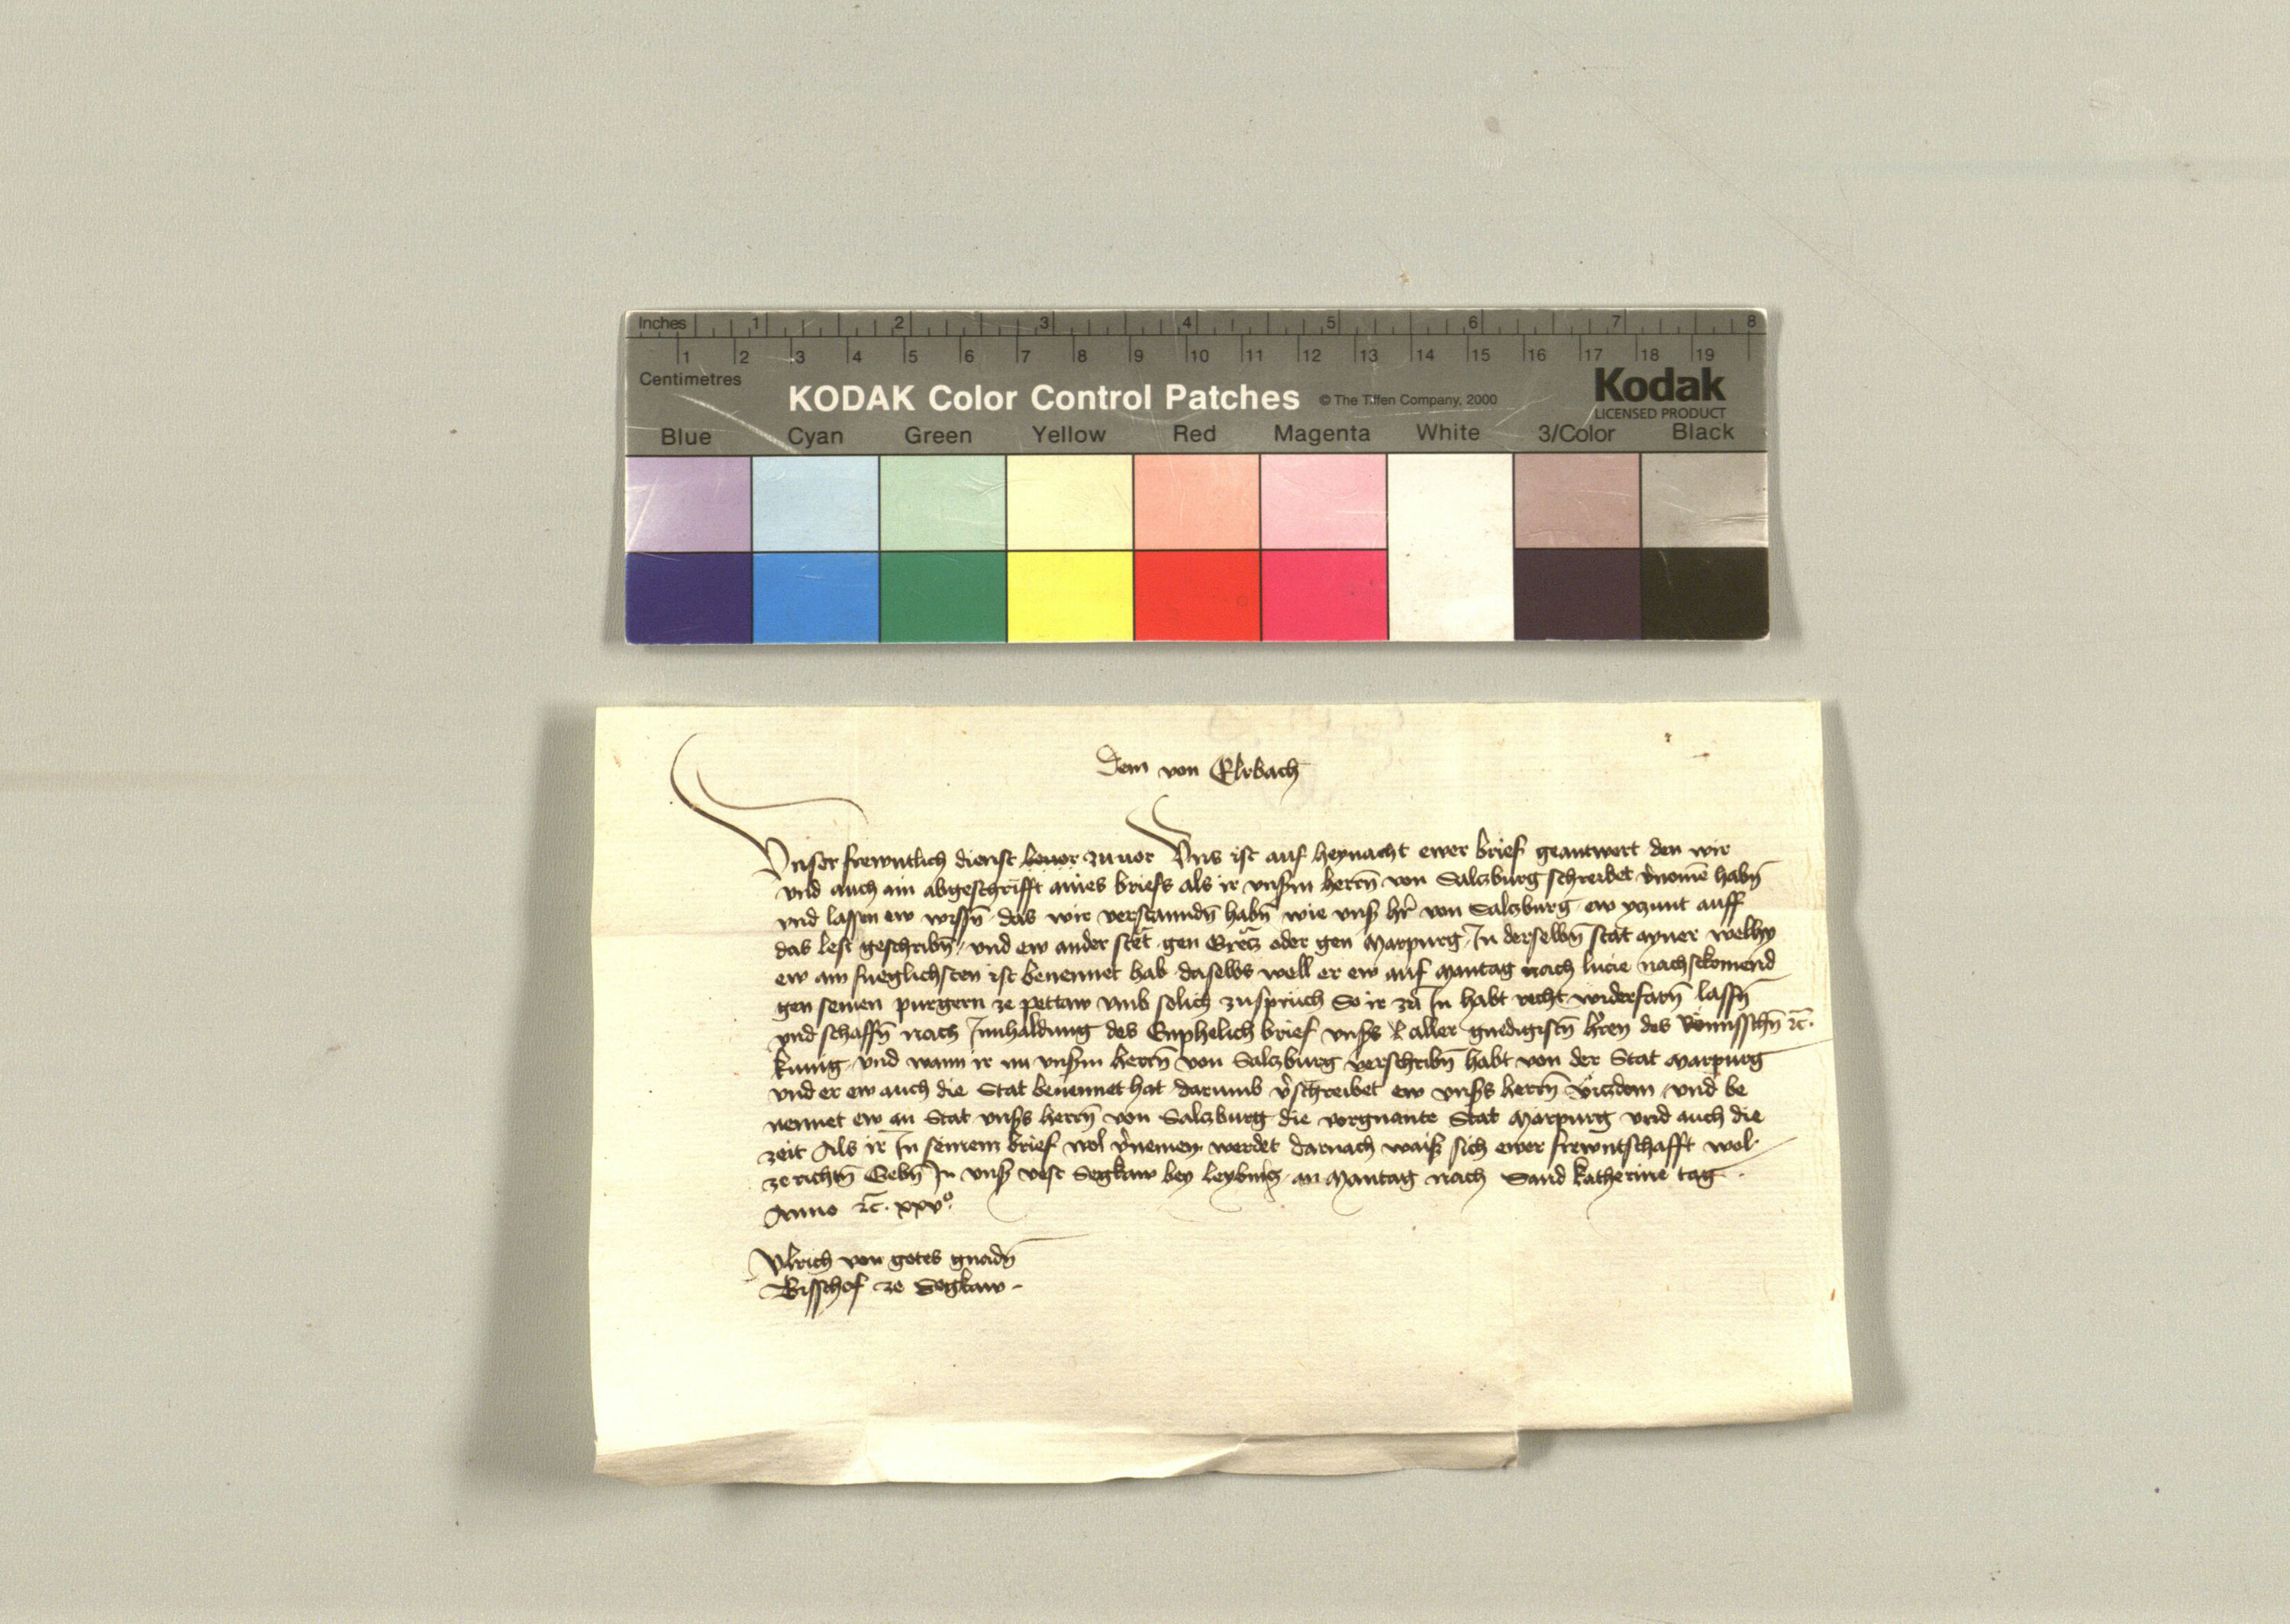 Inches 1 2 3 4 5 6 7 8
1 2 3 4 5 6 7 8 9 10 11 12 13 14 15 16 17 18 19
Centimetres
KODAK Color Control Patches © The Tiffen Company, 2000 Kodak
LICENSED PRODUCT
Blue Cyan Green Yellow Red Magenta White 3/Color Black
Dem von Elrbach
Vnser frewntlich dienst beuor zuuor Vns ist auf heynacht ewer brief geantwert den wir
vnd auch ain abgeschrifft aines briefs als ir vnsßm herrn̄ von Salczburg schreibet v̉nomē habn̄
vnd lassen ew wissn̄ das wir verstanndn̄ habn̄ wie vnsß hr̉ von Salczburg ew yczunt auff
das lest geschribn̄ vnd ew ander stet gen Gretz oder gen Marpurg In derselbn̄ stat ayner welhy
ew am fueglichsten ist benennet hab daselbs well er ew auf Mantag nach lucie nachstkomend
gen seinen purgern ze pettaw vmb solich zuspruch So ir zu In habt recht widerfarn̄ lassn̄
vnd schaffn̄ nach Innhaldung des Enphelich brief vnsßs aller gnedigistn̄ hr̉ren des Romisschn̄ ꝛc̄.
kunig vnd wann ir nu vnsßm herrn̄ von Salczburg verschribn̄ habt von der Stat Marpurg
vnd er ew auch die Stat benennet hat darumb v̉schreibet ew vnsßs herrn̄ viczdom vnd be
nennet ew an Stat vnsßs herrn̄ von Salczburg die vorgnante Stat Marpurg vnd auch die
zeit Als ir In seinem brief wol v̉nemen werdet darnach waiß sich ewer frewntschafft wol
ze richtn̄ Gebn̄ In vnsß vest Segkaw bey leybnitz an Mantag nach Sand katherine tag
Anno ꝛc̄. xxv°
Vlrich von gotes gnadn̄
Bisschof ze Segkaw